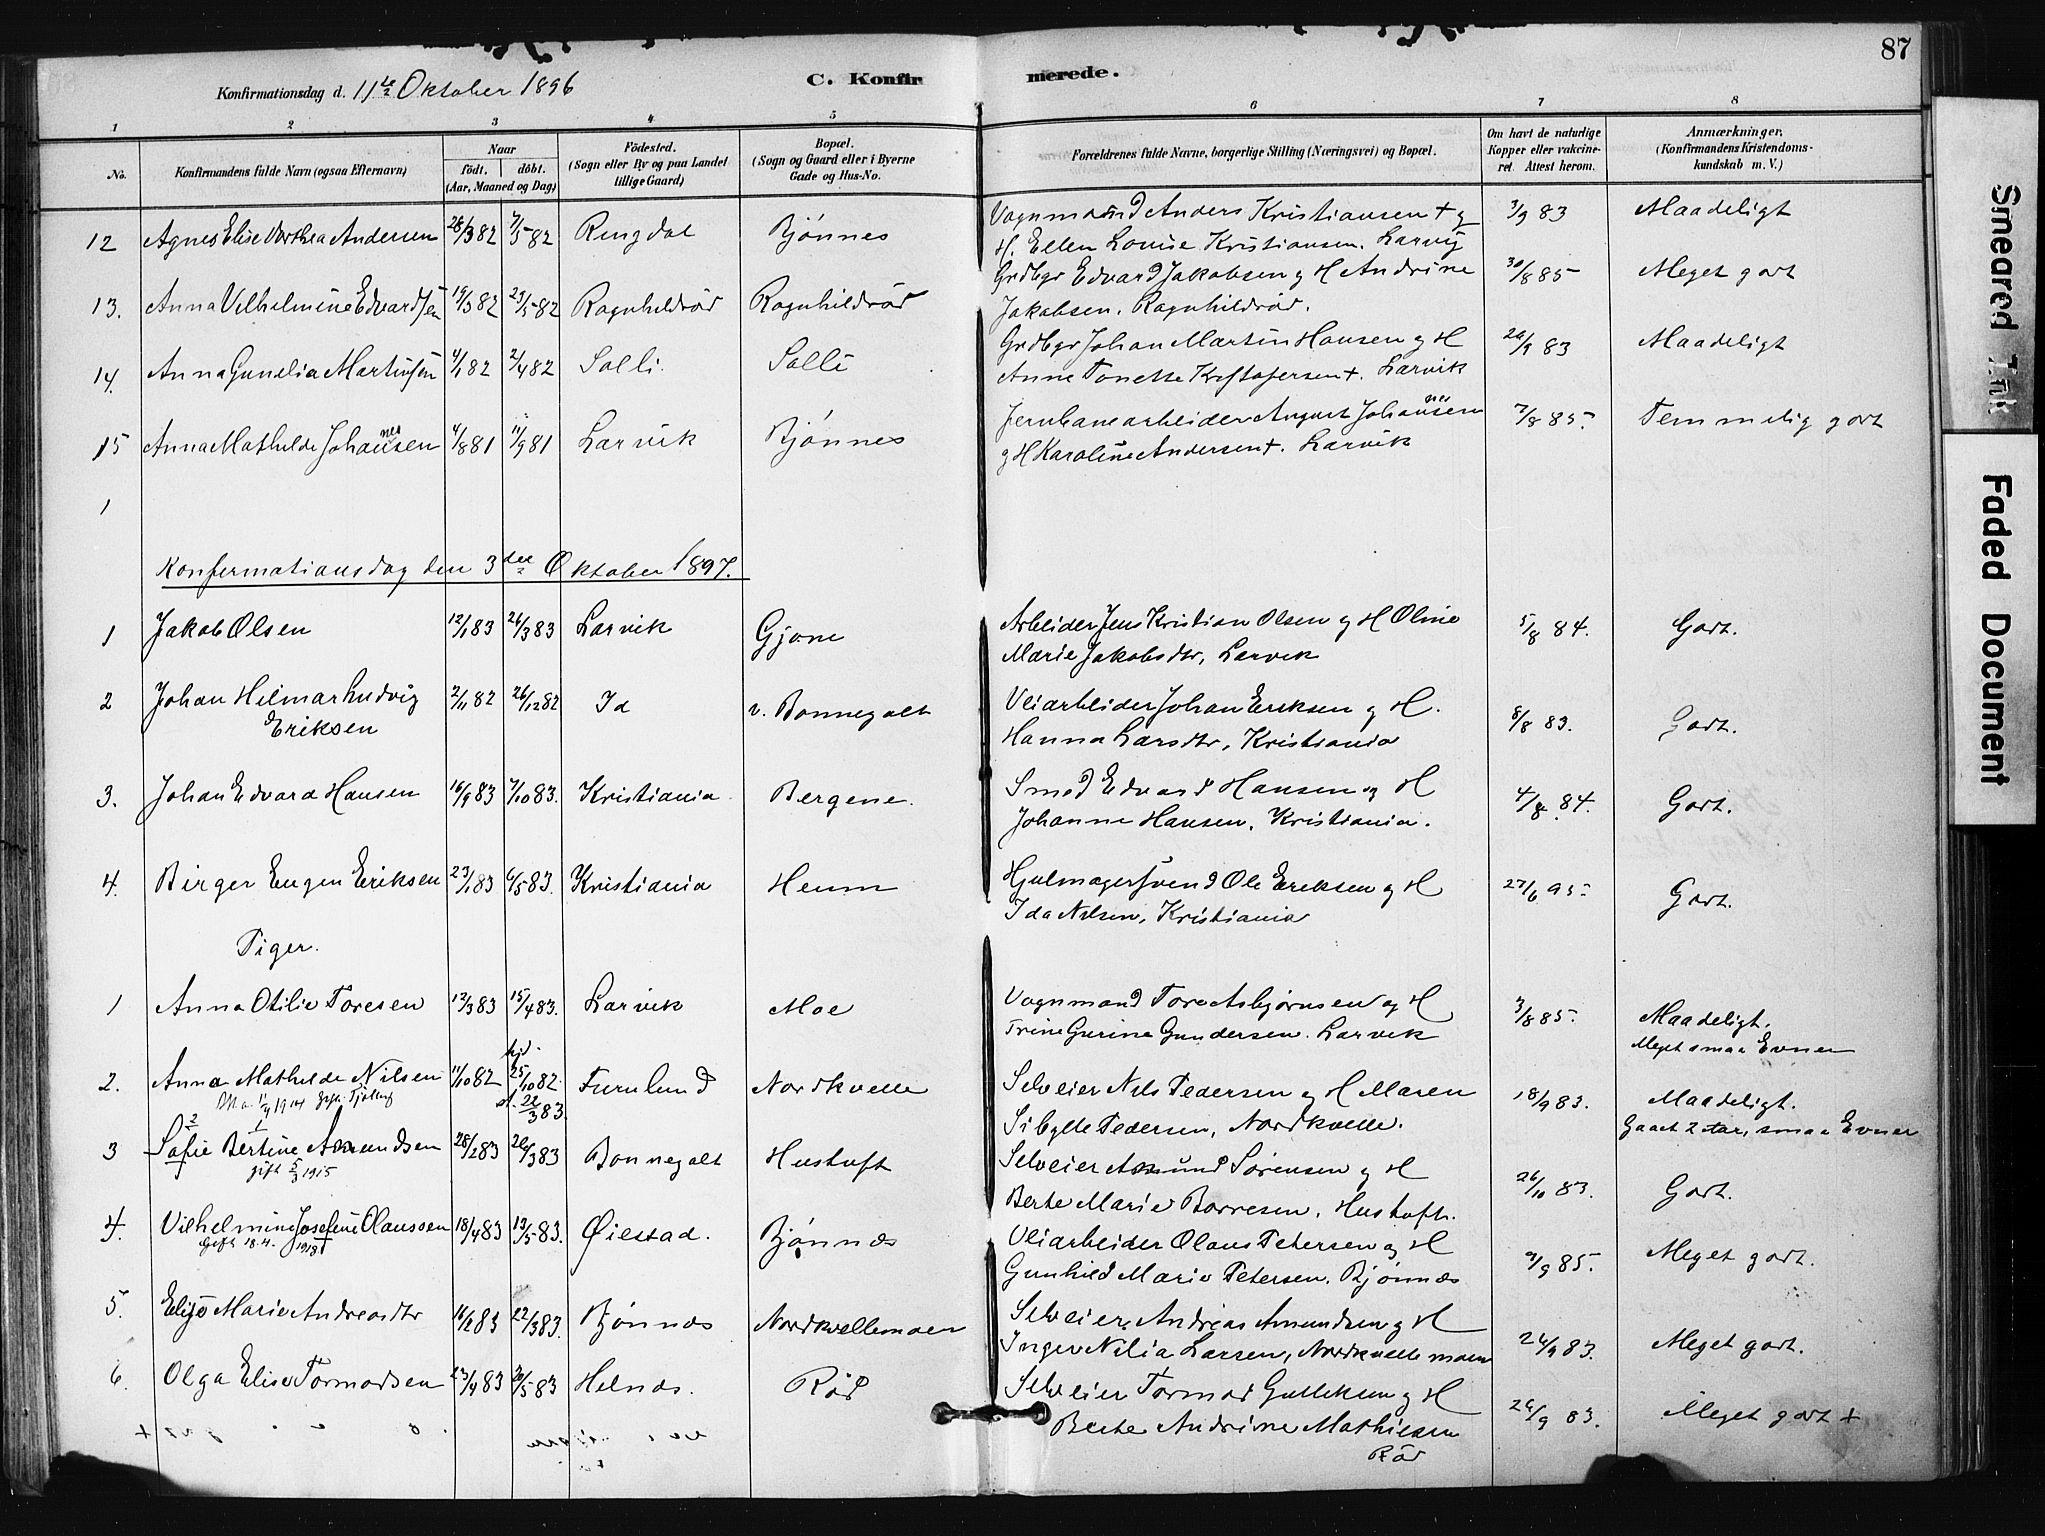 87
Konfirmationsdag d. 11te Oktober 1896
C. Konfirmerede.
1 2 3 4 5 6 7 8
No.
Konfirmandens fulde Navn (ogsaa Efternavn)
Naar
födt. döbt.
(Aar, Maaned og Dag)
Födested.
(Sogn eller By og paa Landet
tillige Gaard)
Bopæl.
(Sogn og Gaard eller i Byerne
Gade og Hus-No.
Forældrenes fulde Navne, borgerlige Stilling (Næringsvei) og Bopæl.
Om havt de naturlige
Kopper eller vakcine-
ret. Attest herom.
Anmærkninger.
(Konfirmandens Kristendoms-
kundskab m. V.)
12 Agnes Elise Dorthea Andersen 28/3 82 7/5 82 Ringdal Bjønnes Vognmand Anders Kristiansen + og 3/9 83 Maadeligt
H. Ellen Louise Kristiansen. Larvig
13. Anna Vilhelmine Edvardsen 19/3 82 29/5 82 Ragnhildrød Ragnhildrød Grdbgr Edvard Jakobsen og H Andrine 30/8 85 Meget godt
Jakobsen. Ragnhildrød.
14. Anna Gunelia Martinsen 4/1 82 2/4 82 Solli Solli Grdbgr Johan Martin Hansen og H 29/9 83 Maadeligt
Anne Tonette Kristofersen +. Larvik
15 Anna Mathilde Johannesen 4/8 81 11/9 81 Larvik Bjønnes Jernbanearbeider August Johannesen 7/8 85. Temmelig godt
og H Karoline Andersen +. Larvik
1
Konfirmationsdag den 3die Oktober 1897.
1 Jakob Olsen 12/1 83 26/3 83 Larvik Gjone Arbeider Jens Kristian Olsen og H Oline 5/8 84. Godt.
Marie Jakobsdtr, Larvik
2 Johan Hilmar Ludvig 2/11 82 26/12 82 Id v. Bonnegolt Veiarbeider Johan Eriksen og H. 8/8 83. Godt.
Eriksen Hanna Larsdtr, Kristiania
3. Johan Edvard Hansen 16/9 83 7/10 83. Kristiania Bergene. Smed Edvard Hansen og H 4/8 84. Godt.
Johanne Hansen. Kristiania.
4. Birger Eugen Eriksen 23/1 83 6/5 83. Kristiania Heum Hjulmagersvend Ole Eriksen og H 27/6 95. Godt.
Ida Nilsen, Kristiania
Piger.
1 Anna Otilie Toresen 12/3 83 15/4 83. Larvik Moe Vognmand Tore Asbjørnsen og H 3/8 85. Maadeligt.
Trine Gurine Gundersen. Larvik Meget smaa Evner
2. Anna Mathilde Nilsen 11/10 82 hjd. 25/10 82 st. 22/3 83. Furulund Nordkvelle Selveier Nils Pedersen og H Maren 18/9 83. Maadeligt.
1914 Tjølling
Sibylle Pedersen, Nordkvelle. Gaaet 2 Aar, smaa Evner
3 Sofie Bertine Amundsen 28/2 83 20/3 83 Bonnegolt Hustoft Selveier Amund Sørensen og H 26/10 83. Godt.
gift 5/3 1915
Berte Marie Borresen. Hustoft.
4. Vilhelmine Josefine Olaussen 18/4 83 13/5 83. Øilstad. Bjønnes Veiarbeider Olaus Petersen og H 9/9 85. Meget godt.
Gift 18.4. 1913
Gunhild Marie Petersen. Bjønnes
5. Elise Marie Andreasdtr 16/2 83 22/3 83. Bjønnes Nordkvellemoen Selveier Andreas Amundsen og H 24/9 83. Meget godt.
Inger Nilia Larsen, Nordkvellemoen
6. Olga Elise Tormodsen 23/4 83 20/5 83 Helnæs. Rød Selveier Tormod Gulliksen og H 24/9 83. Meget godt +
Berte Andrine Mathisen
Rød
Smeared Ink
Faded Document